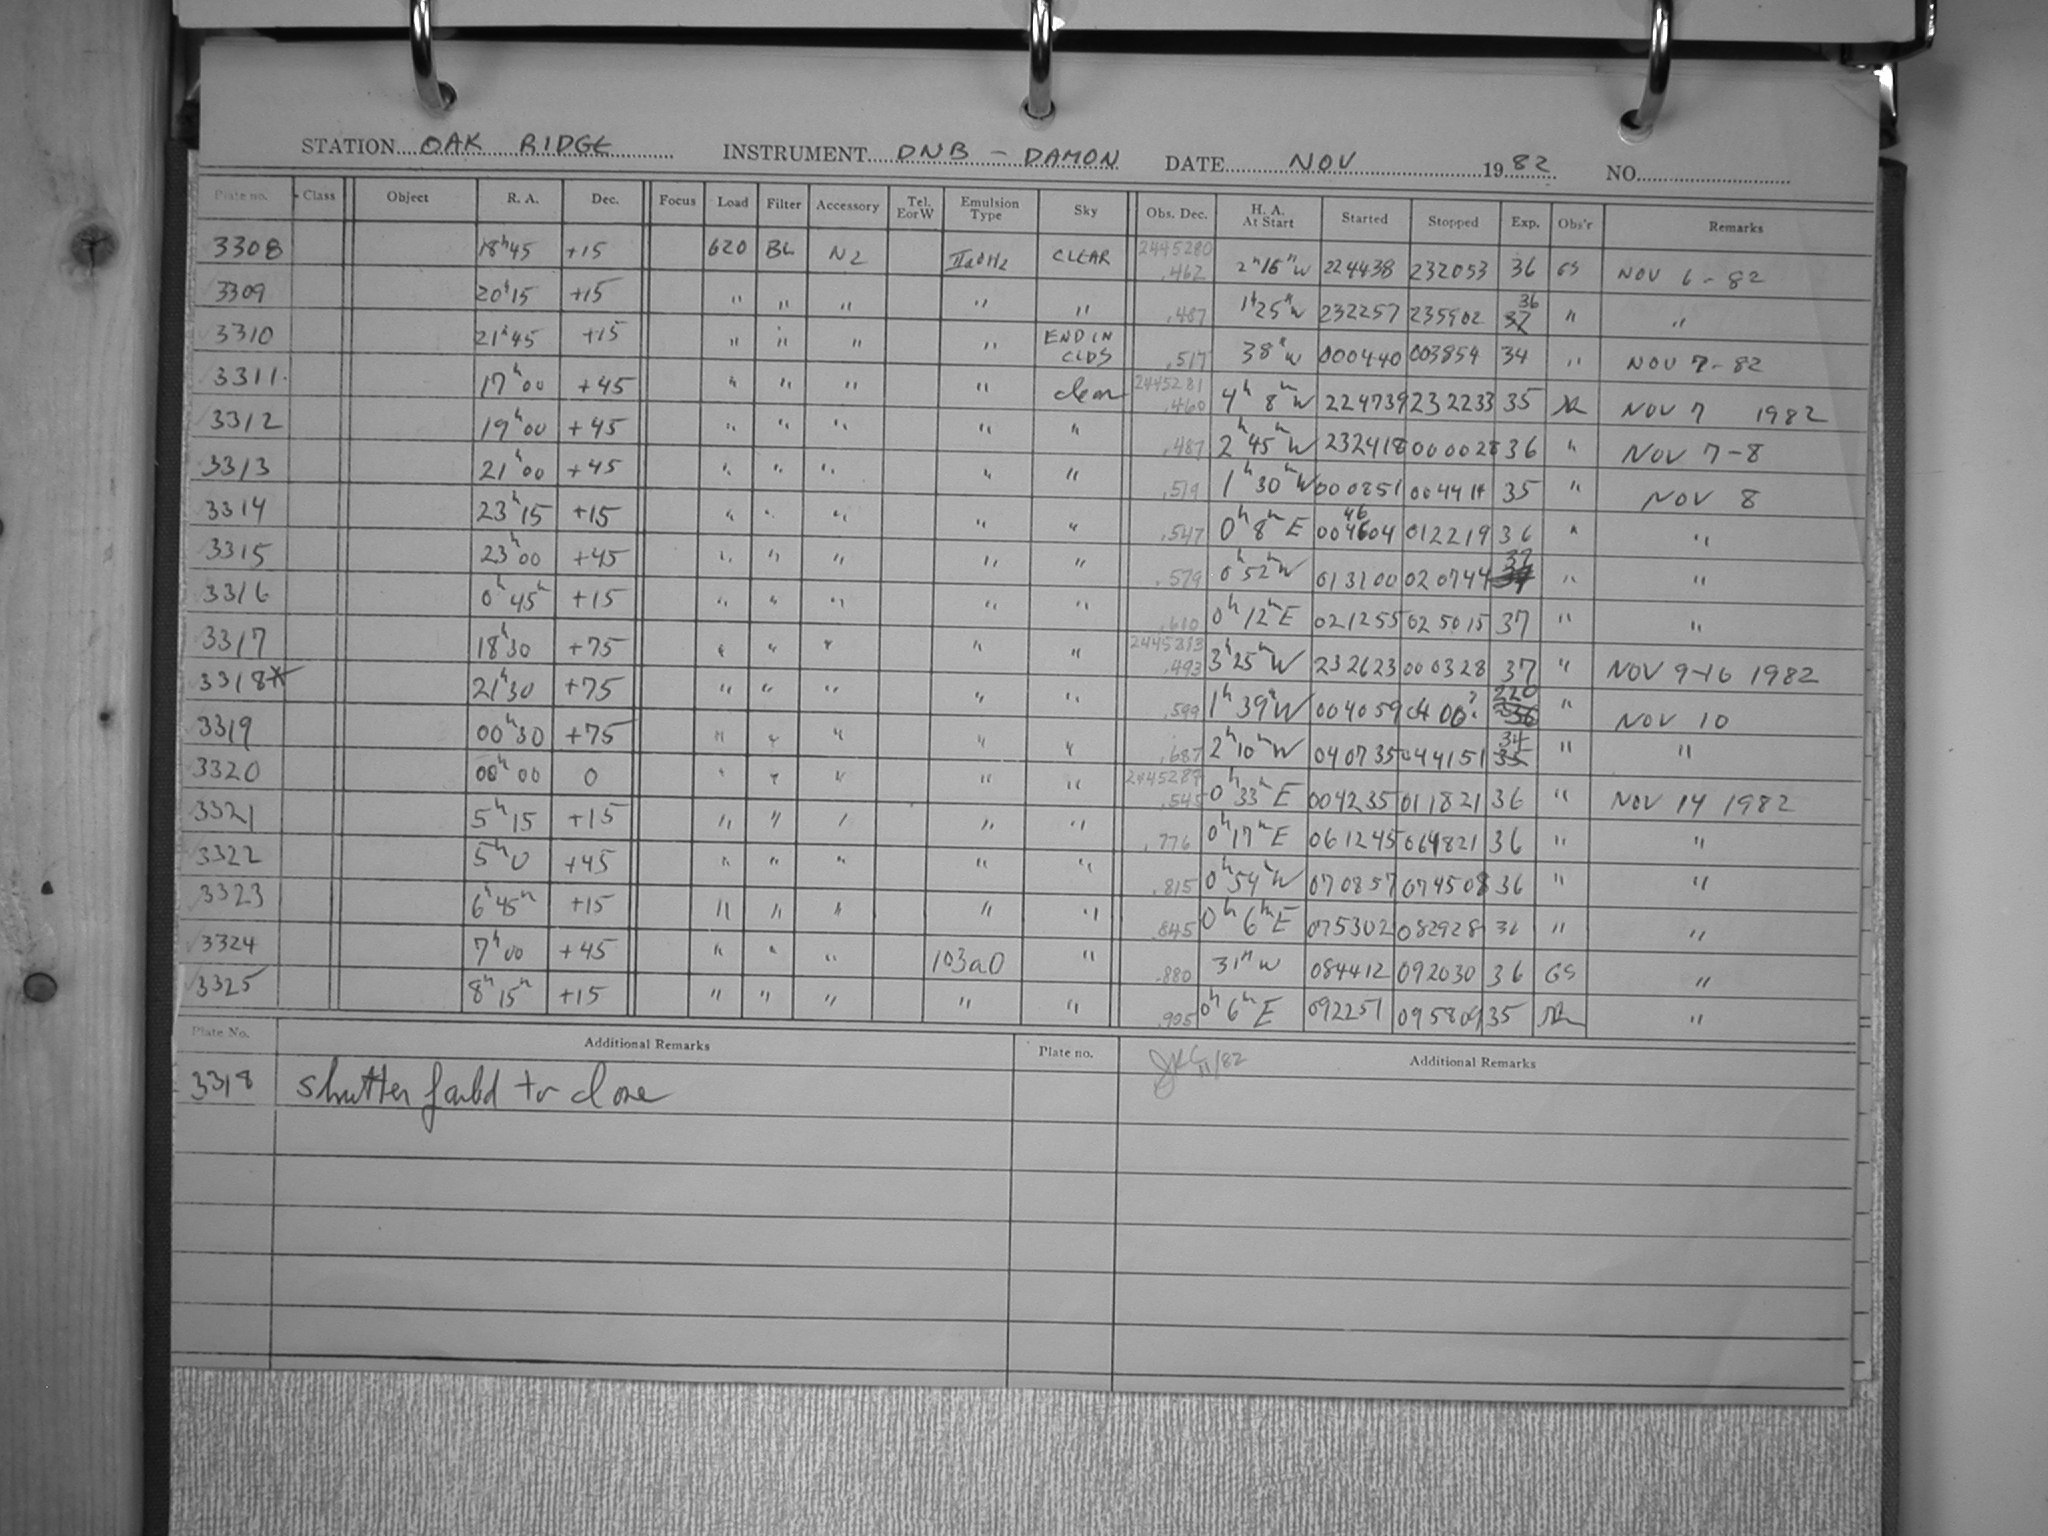 STATION OAK RIDGE INSTRUMENT DNB - DAMON DATE NOV 1982 NO.
Plate no. Class Object R. A. Dec. Focus Load Filter Accessory Tel. E or W Emulsion Type Sky Obs. Dec. H. A. At Start Started Stopped Exp. Obs'r Remarks
3308 18h45 +15 620 BL N2 IIaOH2 CLEAR 2445280 .462 2h16m W 224438 232053 36 GS NOV 6-82
3309 20h15 +15 " " " " " .487 1h25m W 232257 235902 36 37 " "
3310 21h45 +15 " " " " END IN CLDS .517 38m W 000440 003854 34 " NOV 7-82
3311 17h00 +45 " " " " clear 2445281 .460 4h 8m W 224739 232233 35 NOV 7 1982
3312 19h00 +45 " " " " " .487 2h45m W 232418 000028 36 " NOV 7-8
3313 21h00 +45 " " " " " .519 1h30m W 000851 004414 35 " NOV 8
3314 23h15 +15 " " " " " .547 0h8m E 004604 46 012219 36 " "
3315 23h00 +45 " " " " " .579 0h52m W 013100 020744 37 " "
3316 0h45m +15 " " " " " .610 0h12m E 021255 025015 37 " "
3317 18h30 +75 " " " " " 2445283 .493 3h25m W 232623 000328 37 " NOV 9-10 1982
3318* 21h30 +75 " " " " " .599 1h39m W 004059 0400? 220 " NOV 10
3319 00h30 +75 " " " " " .687 2h10m W 040735 044151 34 35 " "
3320 00h00 0 " " " " " 2445287 .545 0h33m E 004235 011821 36 " NOV 14 1982
3321 5h15 +15 " " " " " .776 0h17m E 061245 064821 36 " "
3322 5h0 +45 " " " " " .815 0h54m W 070857 074508 36 " "
3323 6h45m +15 " " " " " .845 0h6m E 075302 082928 36 " "
3324 7h00 +45 " " " 103aO " .880 31m W 084412 092030 36 GS "
3325 8h15m +15 " " " " " .905 0h6m E 092251 095809 35 "
Plate No. Additional Remarks Plate no. 11/82 Additional Remarks
3318 shutter faild to close